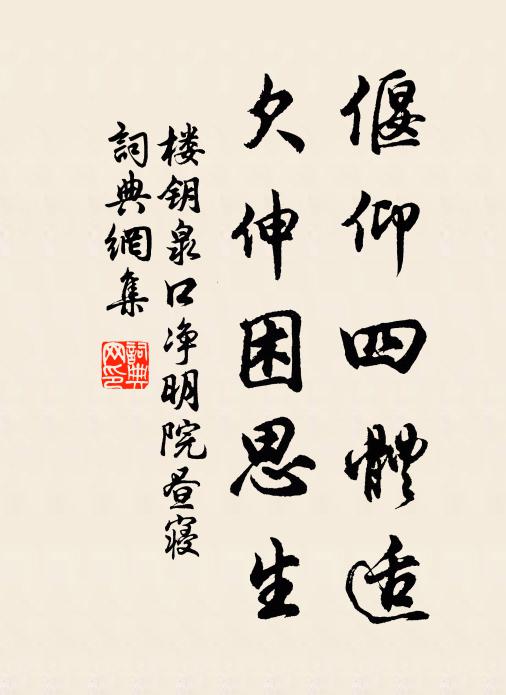 偃仰四體适
欠伸困思生
楼钥泉口净明院昼寝
詞典網集
詞典網印